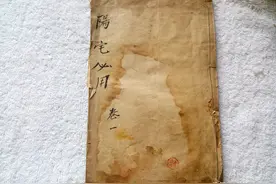 陽宅必用
卷一